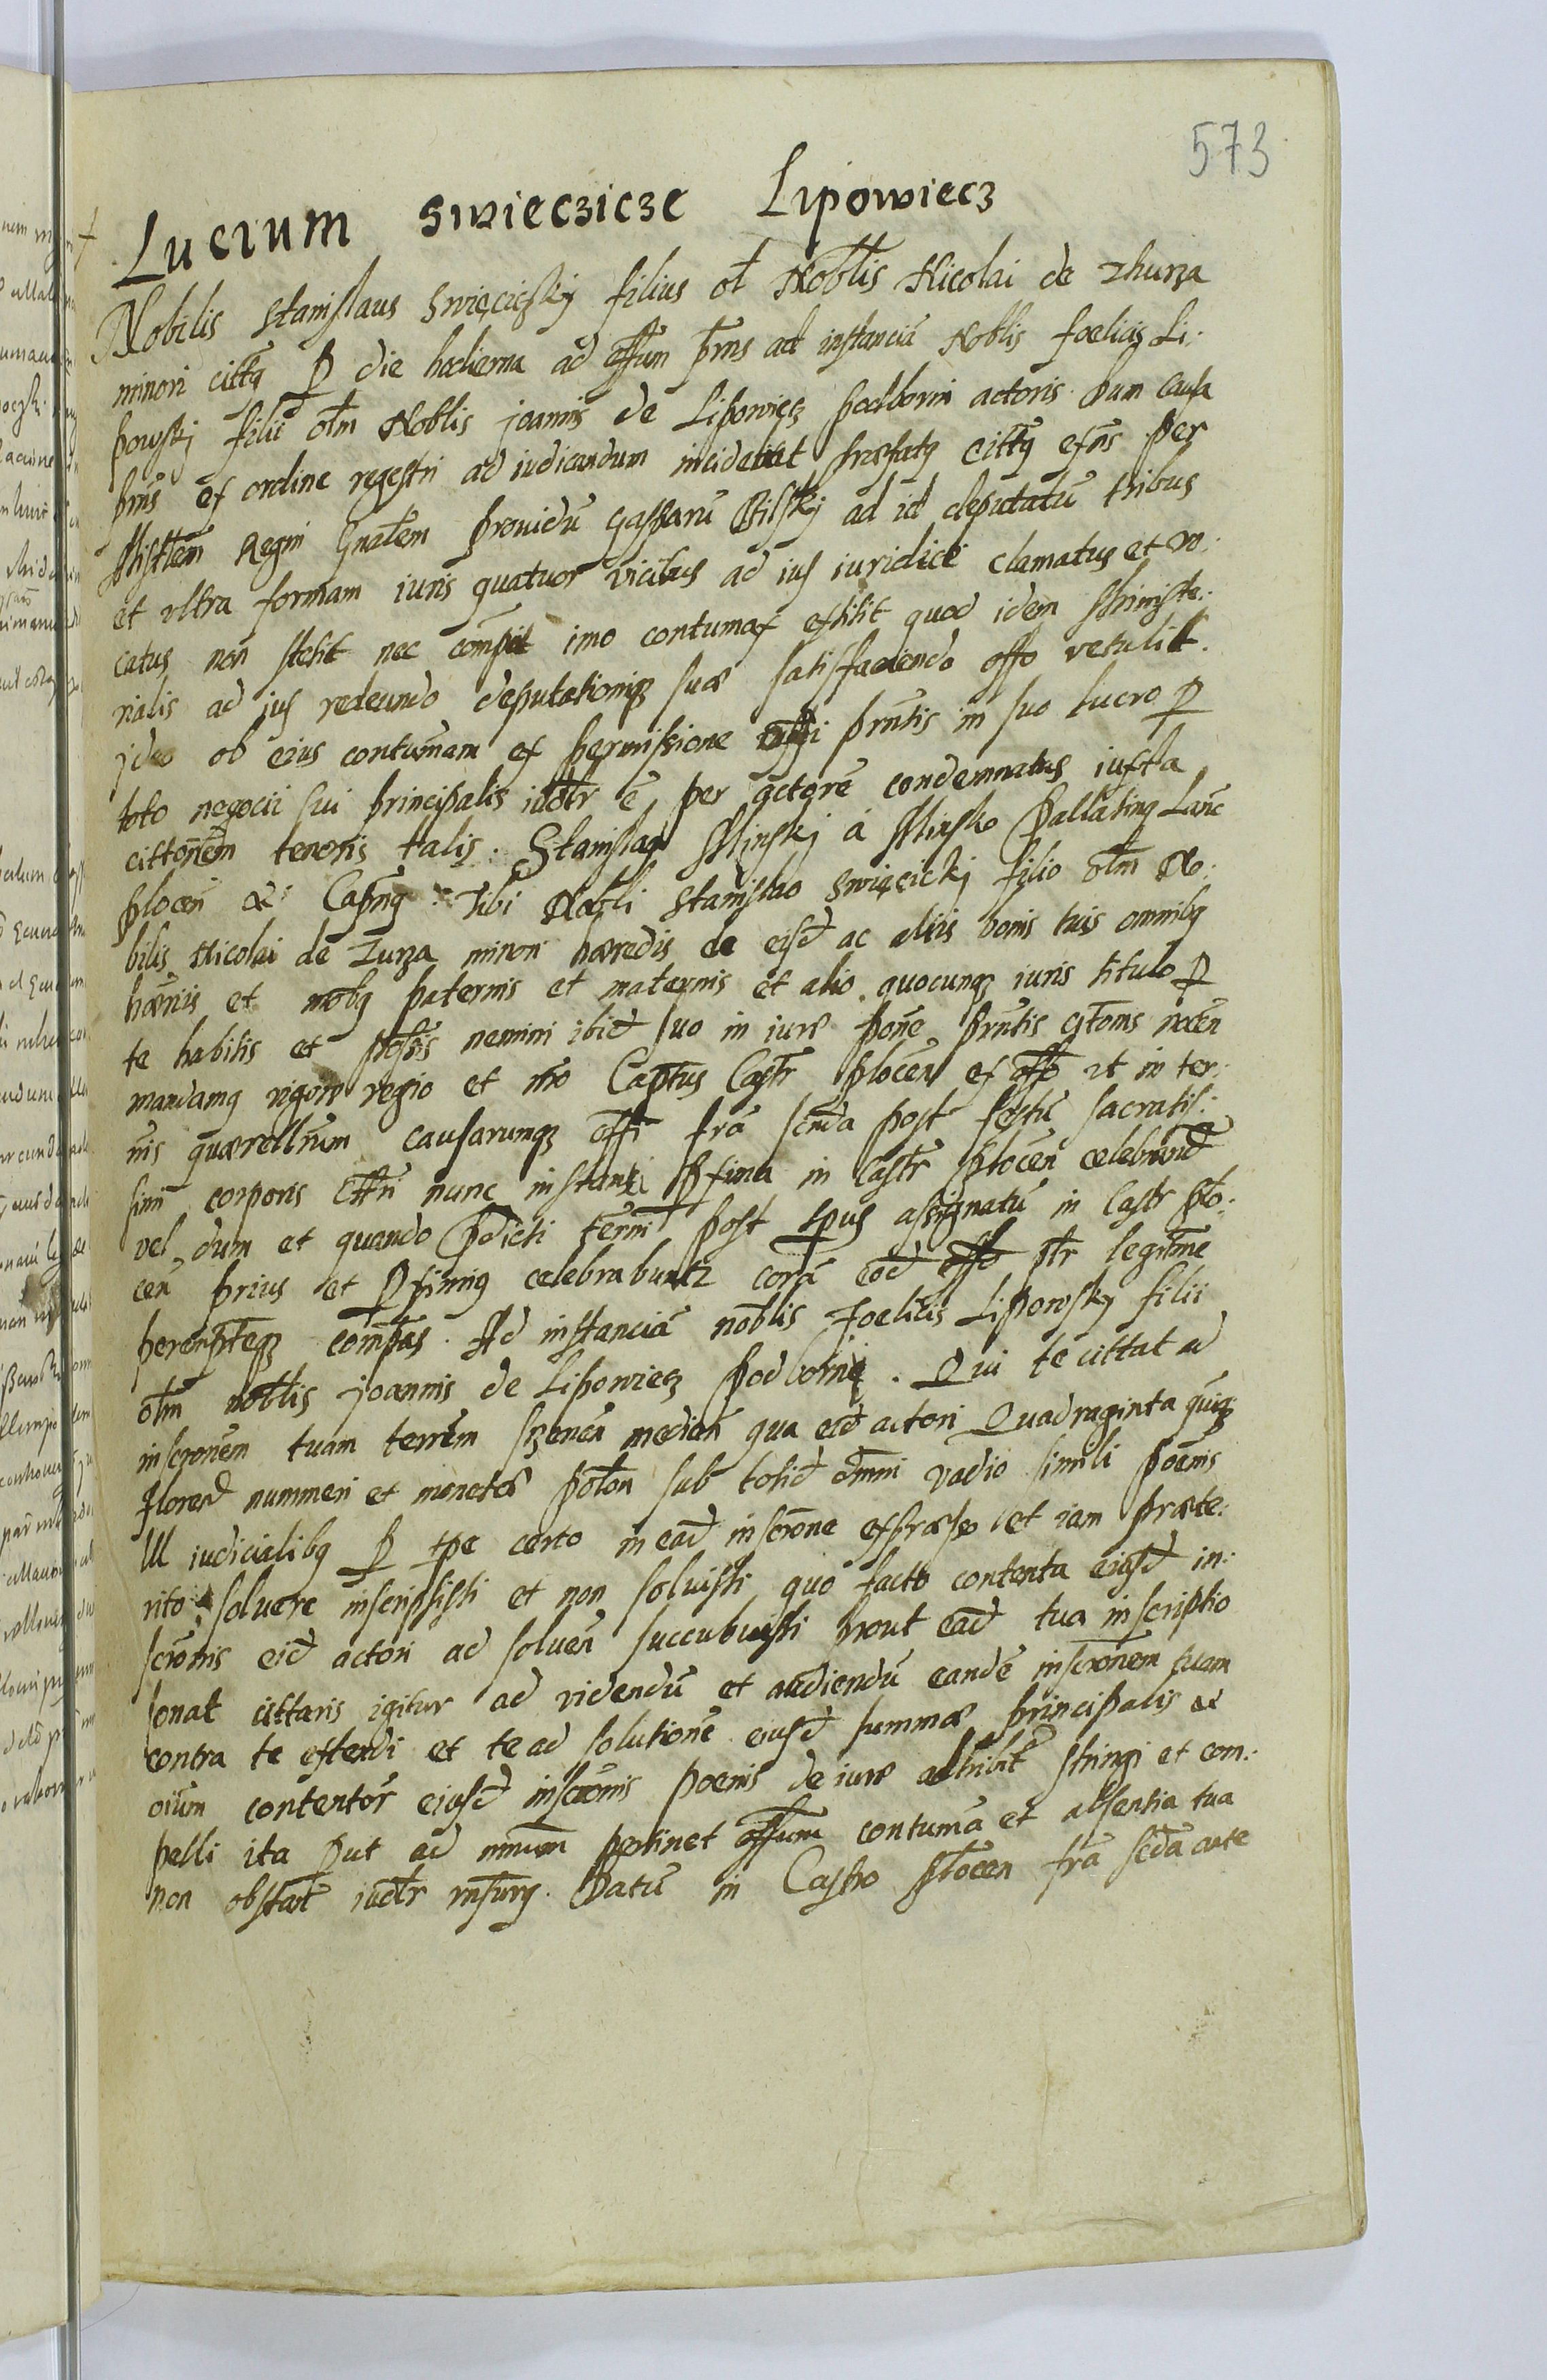 573
Lucrum Swieczicze Lipowiecz
Nobilis Stanislaus Swięcickÿ filius ol Noblis Nicolai de Zhurza
minori cittq p die hodierna ad offum prns ad instanciā Noblis foelicis Li:
powskj filii olm Noblis joannis de Lipowięcz podborni actoris dum causa
prns ex ordine regestri ad iudicandum inciderat praefatq cittq exns per
Mistlem Regni Gnalem prouidū Gasparū Bilskj ad id deputatū tribus
et vltra formam iuris quatuor vicibus ad ius iuridice clamatus et vo:
catus non stetit nec comprt imo contumax extitit quod idem Ministe:
rialis ad jus redeundo deputationiqz suae satisfaciendo offo retulit.
jdeo ob eius contumam ex permissione offi prntis in suo lucro p
toto negocii sui principalis iudtr ē, per actorē condemnatus iuxta
cittonem tenoris talis. Stanislaq Minskj á Minsko Pallatinq Lanc
plocen &: Capnq. Tibi Nobli Stanislao Swięcickj filio olm No:
bilis Nicolai de Zurza minori haeredis de eisd ac aliis bonis tuis omnibq
haeriis et mobq paternis et maternis et alio quocunqz iuris titulo p
te habitis et possis nemini ibid suo in iure pone prntis cittonis nocen
mandamq rigore regio et nro Captus Castr plocen ex offo vt in ter:
nis quaerellrum causarumqz offi fra scnda post festū sacratis:
simi corporis Chri nunc instanti pxima in Castr plocen celebrand
vel dum et quando pdicti termi post tpus assignatū in Castr plo:
cen prius et pximiq celebrabuntr corā eod offo ptr legittime
peremptqz compas. Ad instanciā noblis Foelicis Lipowsky filii
olm noblis joannis de Lipowiecz podborni. Qui te cittat ad
inscronem tuam terrem Szrenen medien qua eid actori Quadraginta quiqz
floren nummeri et monetae polon sub totid omni vadio simili poenis
lll iudicialibq p tpe certo in ead inscrone expraeso et iam praete:
rito soluere inscripsisti et non soluisti quo facto contenta eiusd in:
scronis eid actori ad soluen succubuisti prout ead tua inscriptio
sonat cittaris igitur ad videndū et audiendū eandē inscronem tuam
contra te extendi et te ad solutionē eiusd summae principalis &
oium contentor eiusd inscronis poenis de iure adhibit stringi et com:
pelli ita put ad nrum pertinet offum contumā et absentia tua
non obstan iudtr rnsurq. Datū in Castro plocen fra scda ante